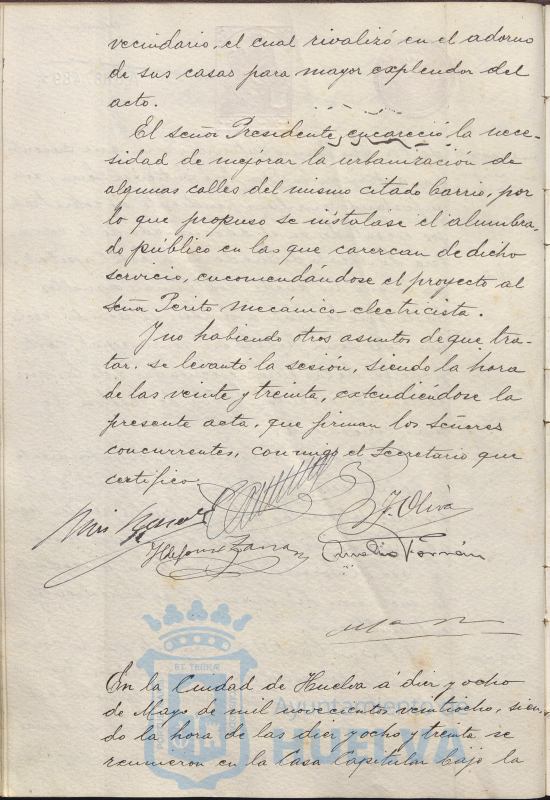 vecindario, el cual rivalizó en el adorno
de sus casas para mayor explendor del
acto.
El señor Presidente, encareció la nece-
sidad de mejorar la urbanización de
algunas calles del mismo citado barrio, por
lo que propuso se instalase el alumbra-
do público en las que carezcan de dicho
servicio, encomendándose el proyecto al
señor Perito mecánico-electricista.
Y no habiendo otros asuntos de que tra-
tar, se levantó la sesión, siendo la hora
de las veinte y treinta, extendiéndose la
presente acta, que firman los señores
concurrentes, conmigo el Secretario que
certifico.
J. Oliva
Ildefonso
Aurelio
En la Ciudad de Huelva á diez y ocho
de Mayo de mil novecientos veintiocho, sien-
do la hora de las diez y ocho y treinta se
reunieron en la Casa Capitular bajo la
Ayuntamiento de
HUELVA